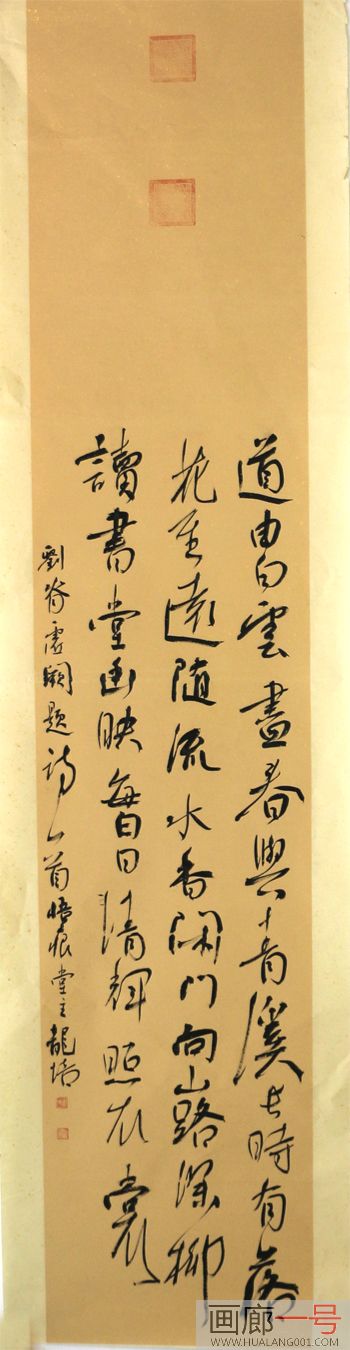 道由白雲盡春與青溪長時有落
花至遠隨流水香閑門向山路深柳
讀書堂幽映每白日清輝照衣裳
劉眘虛闕題詩一首悟痕堂主龍
画廊一号
WWW.HUALANG001.COM